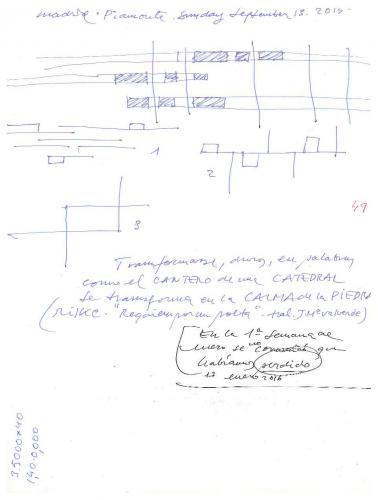 madrid. Piamonte. Sunday September 13. 2015.
1
2
3
49
Transformarse, duros, en palabras
como el CANTERO de una CATEDRAL
se transforma en la CALMA de la PIEDRA
(RILKE. "Requiem por un poeta" - trad. J. Mª Valverde)
En la 1ª semana de
enero se no que
habíamos perdido
13 enero 2016
3.5000x40
140.000